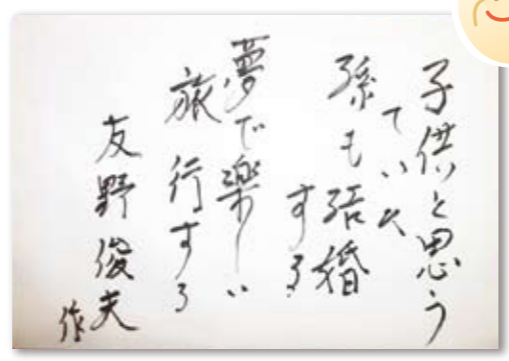 子供と思う
ていた
孫も結婚
する
夢で楽しい
旅行する
友野俊夫
作